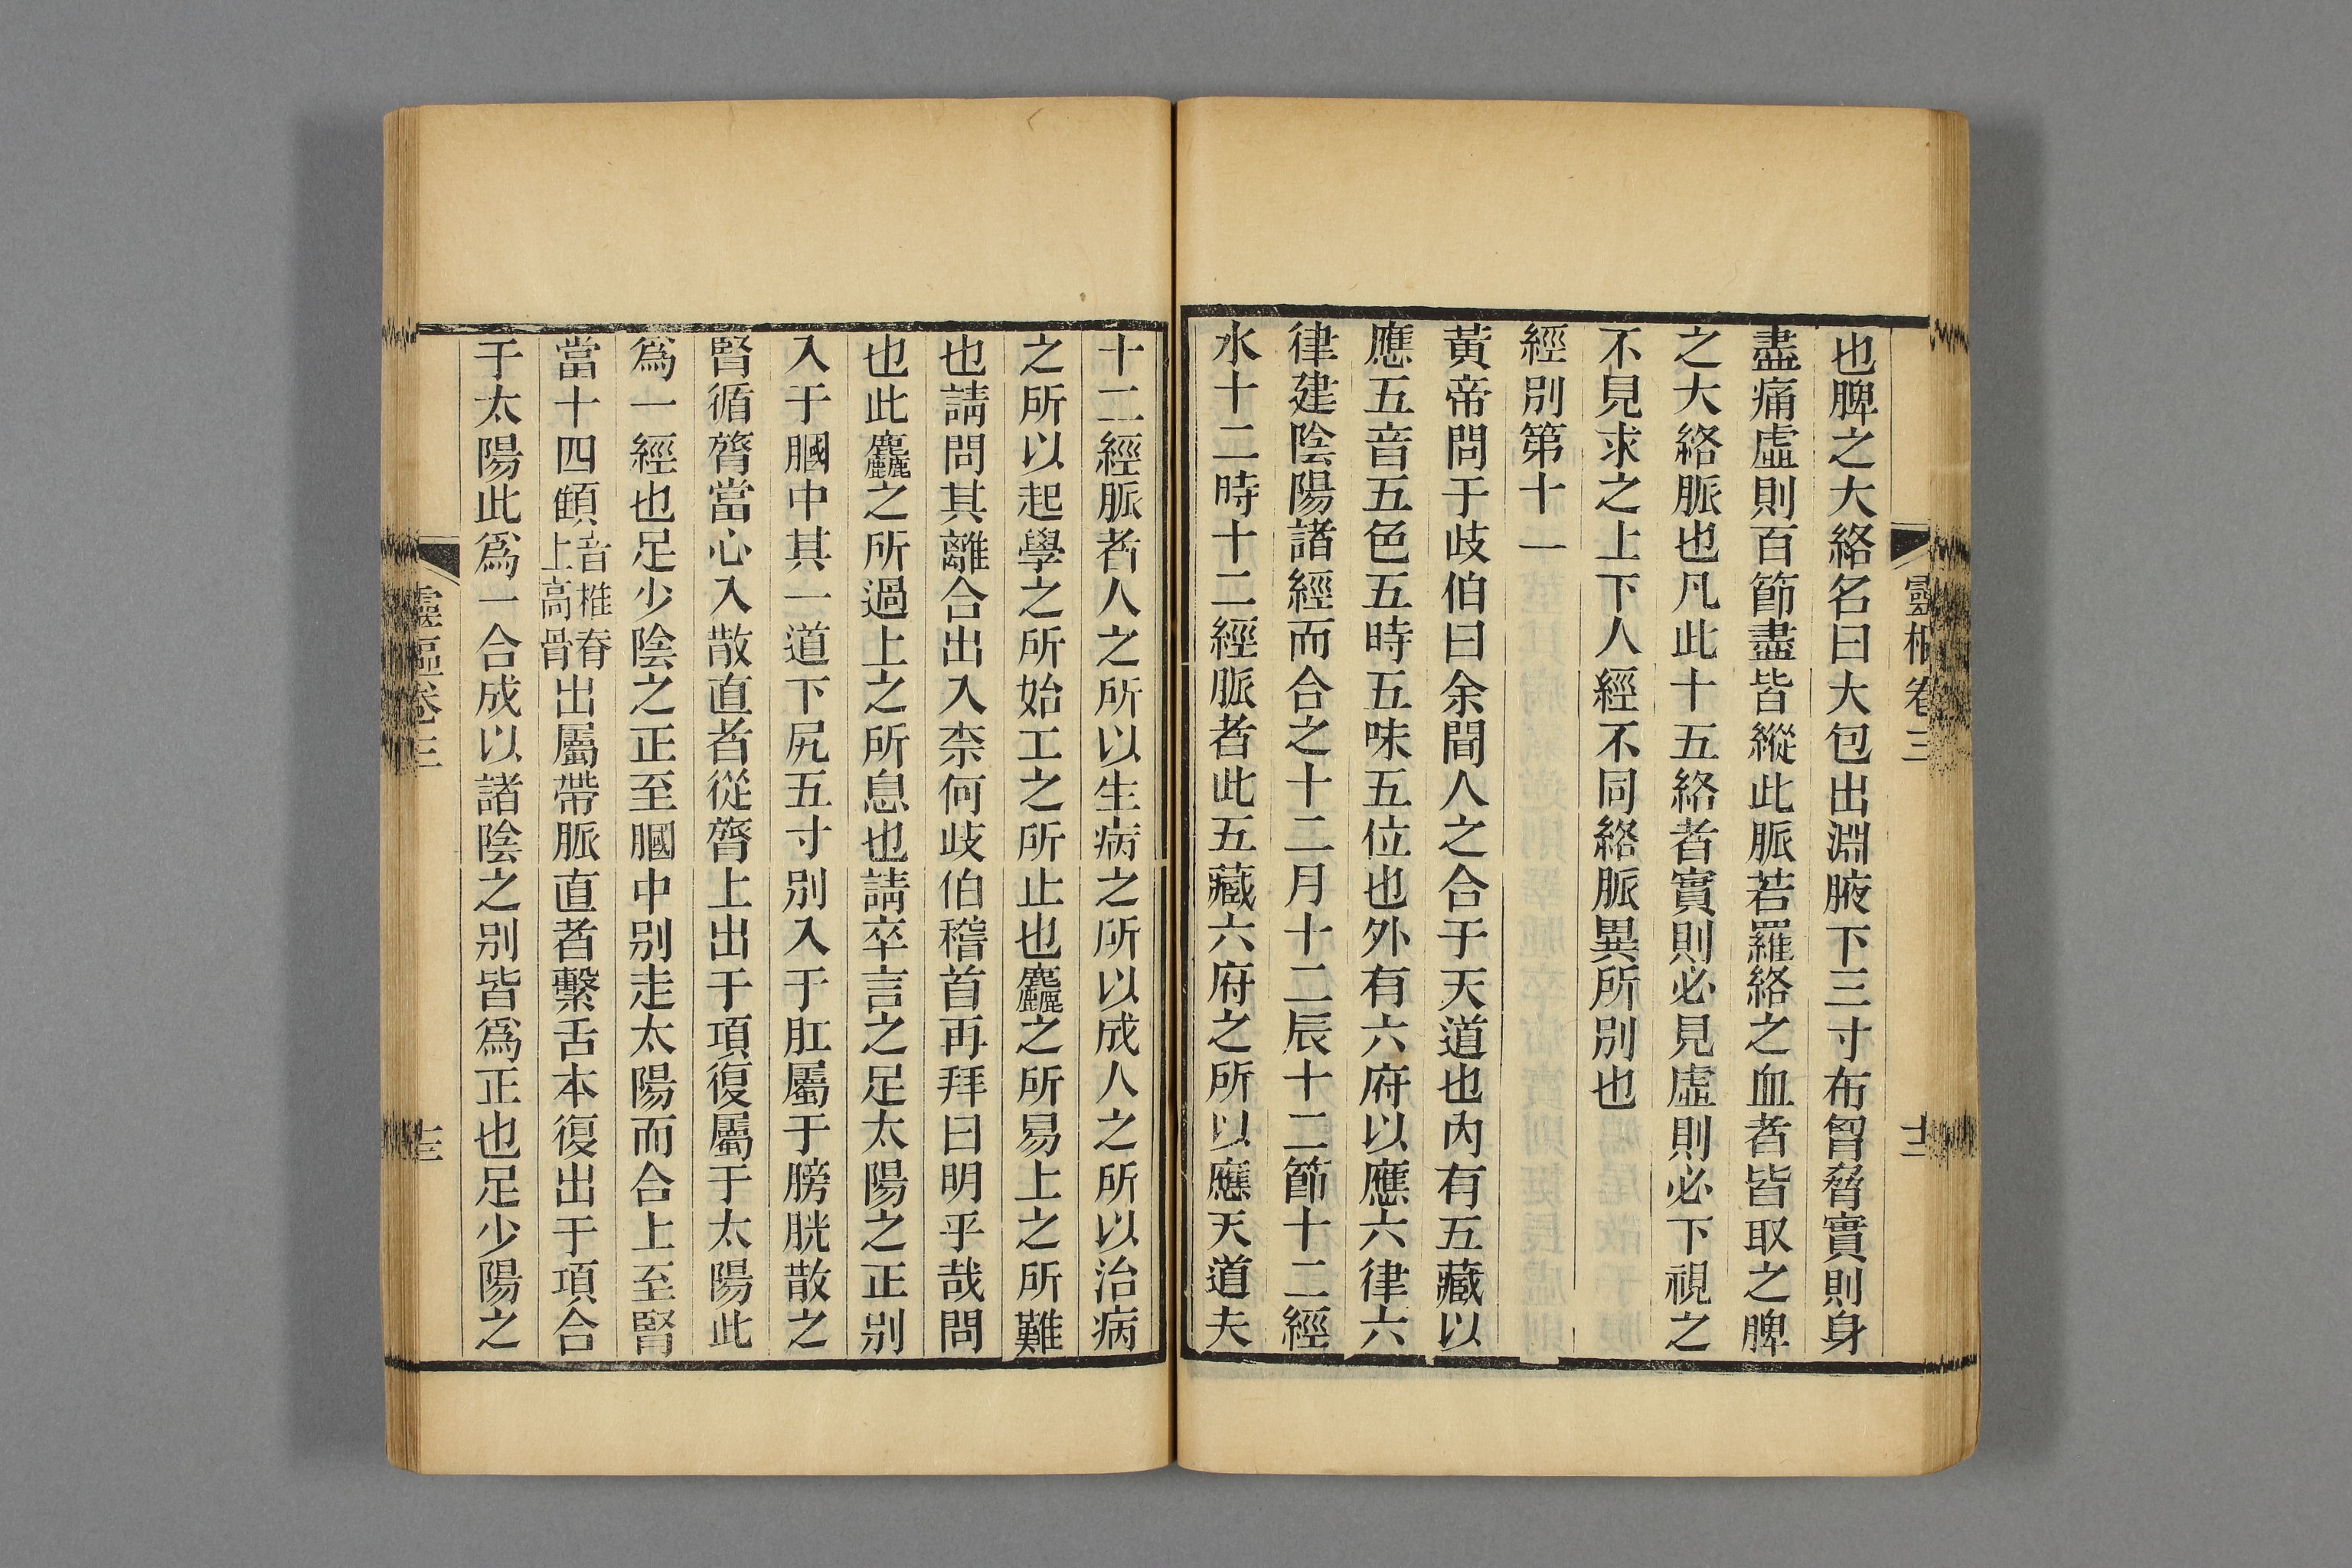 靈樞卷三
十二
也脾之大絡名曰大包出淵腋下三寸布胷脅實則身
盡痛虛則百節盡皆縱此脈若羅絡之血者皆取之脾
之大絡脈也凡此十五絡者實則必見虛則必下視之
不見求之上下人經不同絡脈異所別也
經別第十一
黃帝問于歧伯曰余聞人之合于天道也內有五藏以
應五音五色五時五味五位也外有六府以應六律六
律建陰陽諸經而合之十二月十二辰十二節十二經
水十二時十二經脈者此五藏六府之所以應天道夫
十二經脈者人之所以生病之所以成人之所以治病
之所以起學之所始工之所止也麤之所易上之所難
也請問其離合出入柰何歧伯稽首再拜曰明乎哉問
也此麤之所過上之所息也請卒言之足太陽之正別
入于膕中其一道下尻五寸別入于肛屬于膀胱散之
腎循膂當心入散直者從膂上出于項復屬于太陽此
為一經也足少陰之正至膕中別走太陽而合上至腎
當十四顀音椎脊上高骨出屬帶脈直者繫舌本復出于項合
于太陽此為一合成以諸陰之別皆為正也足少陽之
靈樞卷三
十三